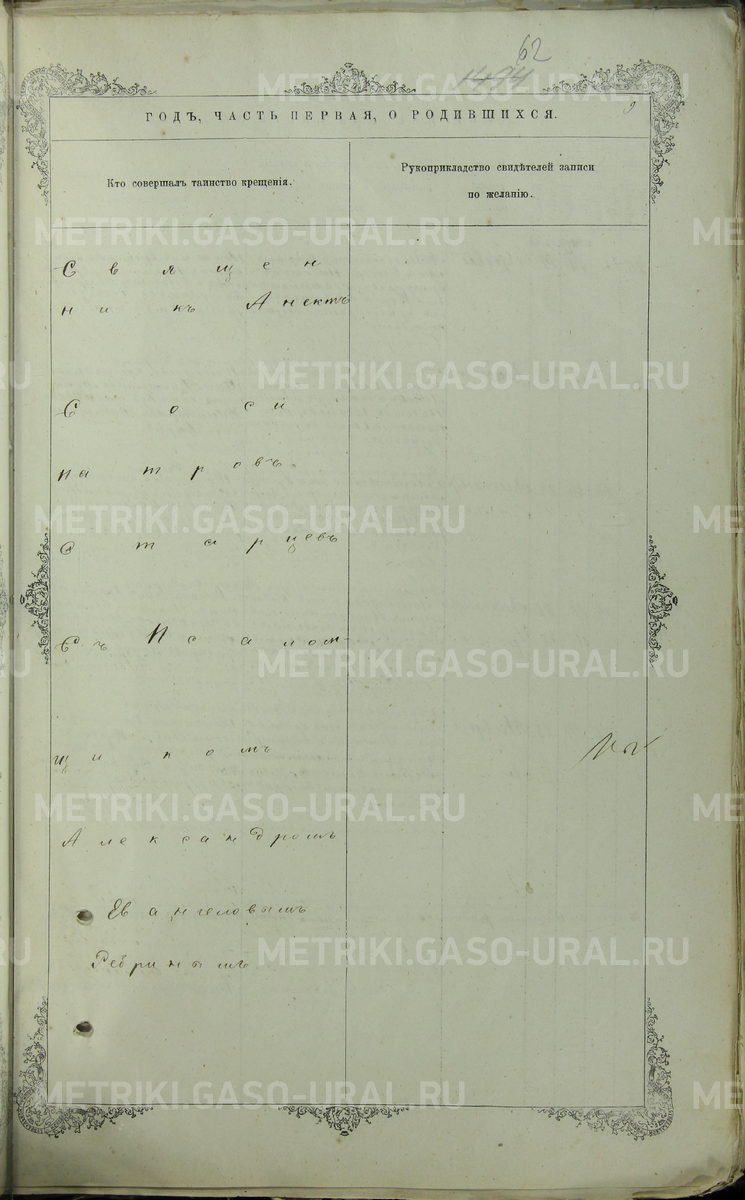 62
1494
9
ГОДЪ, ЧАСТЬ ПЕРВАЯ, О РОДИВШИХСЯ.
Кто совершалъ таинство крещенія.
Рукоприкладство свидѣтелей записи
по желанію.
Священ
никъ Анектъ
Соси
патровъ
Старцевъ
Съ Псалом
щикомъ
Александромъ
Евангеловымъ
Ребринымъ
METRIKI.GASO-URAL.RU